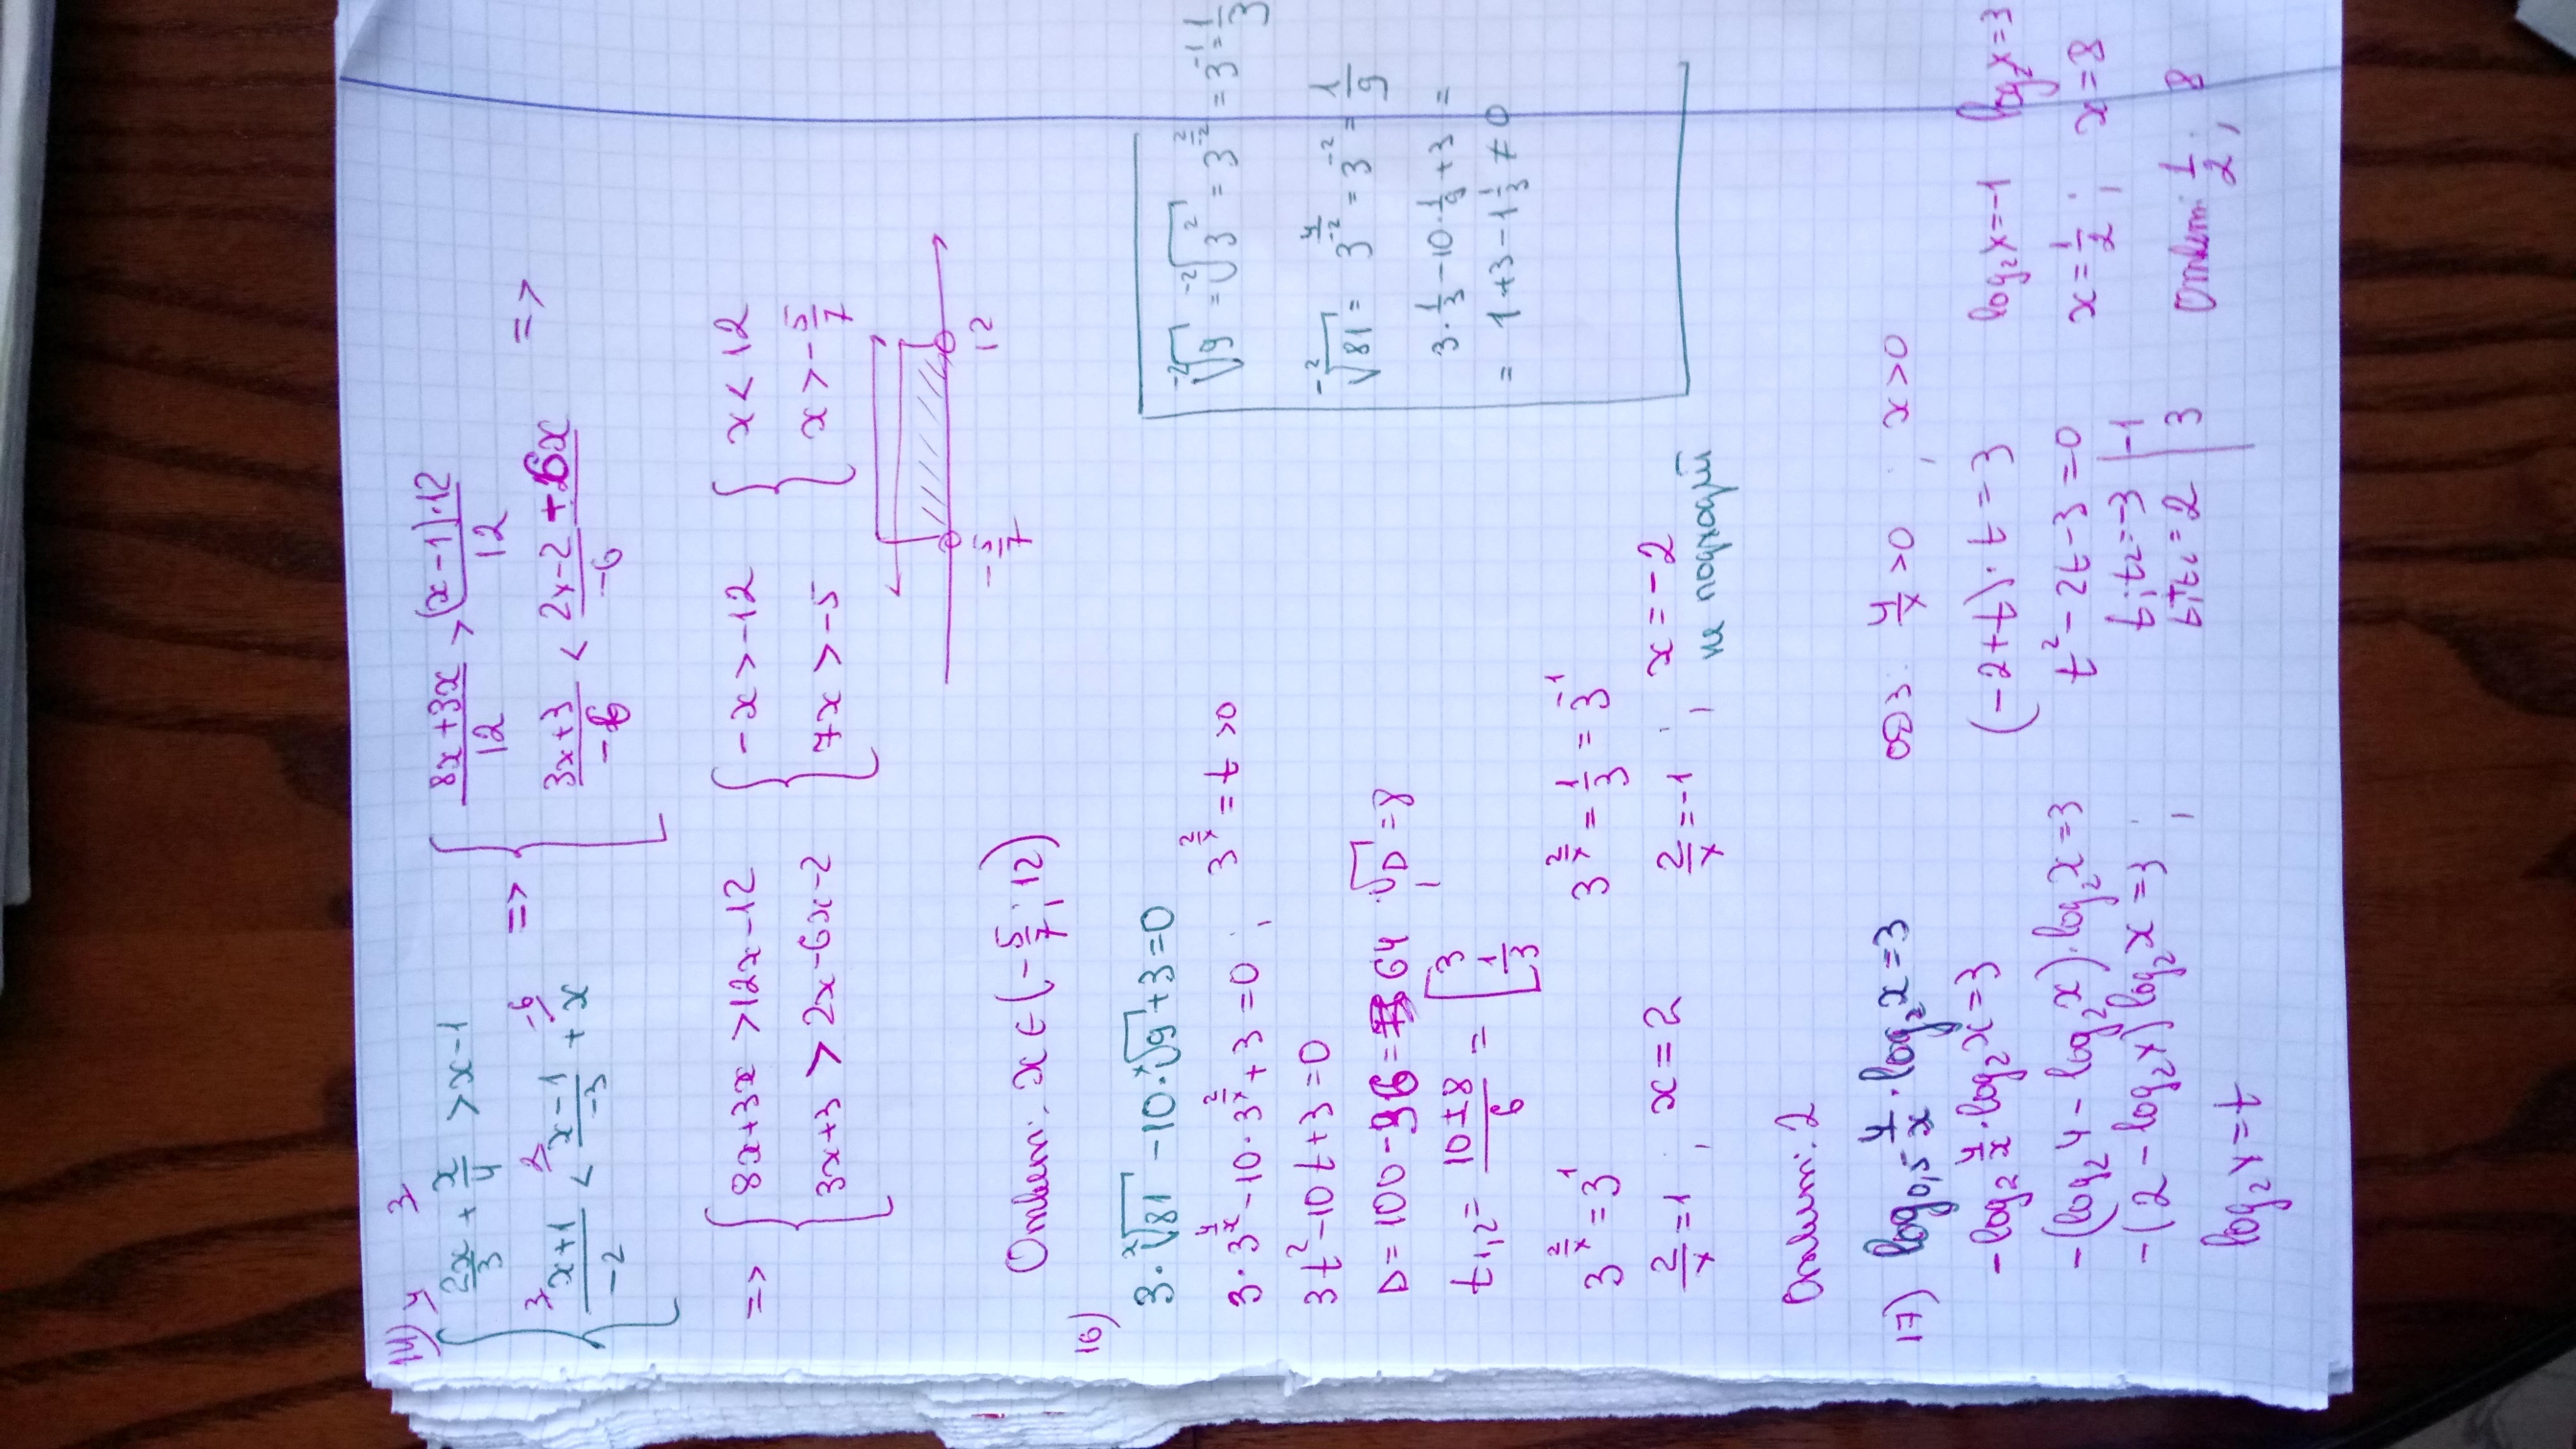 14) 4 3
2x/3 + x/4 > x-1 => (8x+3x)/12 > (x-1)·12/12
3 2 -6
(x+1)/-2 < (x-1)/-3 + x (3x+3)/-6 < (2x-2-6x)/-6 =>
=> { 8x+3x > 12x-12 { -x > -12 { x < 12
3x+3 > 2x-6x-2 7x > -5 x > -5/7
-5/7 12
Ответ: x ∈ (-5/7; 12)
16)
3·ˣ√81 - 10·ˣ√9 + 3 = 0
3·3^(4/x) - 10·3^(2/x) + 3 = 0 ; 3^(2/x) = t > 0
3t² - 10t + 3 = 0
D = 100 - 36 = 64 ; √D = 8
t1,2 = (10±8)/6 = [ 3
1/3
3^(2/x) = 3^1 3^(2/x) = 1/3 = 3^-1
2/x = 1 ; x = 2 2/x = -1 ; x = -2
не подходит
Ответ: 2
⁻²√9 = ⁻²√3² = 3^(2/-2) = 3^-1 = 1/3
⁻²√81 = 3^(4/-2) = 3^-2 = 1/9
3·1/3 - 10·1/9 + 3 =
= 1+3-1 1/3 ≠ 0
17) log0,5 4/x · log2 x = 3 ОДЗ: 4/x > 0 ; x > 0
-log2 4/x · log2 x = 3
-(log2 4 - log2 x)·log2 x = 3
-(2 - log2 x) log2 x = 3 ;
log2 x = t
(-2+t)·t = 3
t² - 2t - 3 = 0
t1t2 = -3 | -1
t1+t2 = 2 | 3
log2 x = -1 log2 x = 3
x = 1/2 ; x = 8
Ответ: 1/2 ; 8